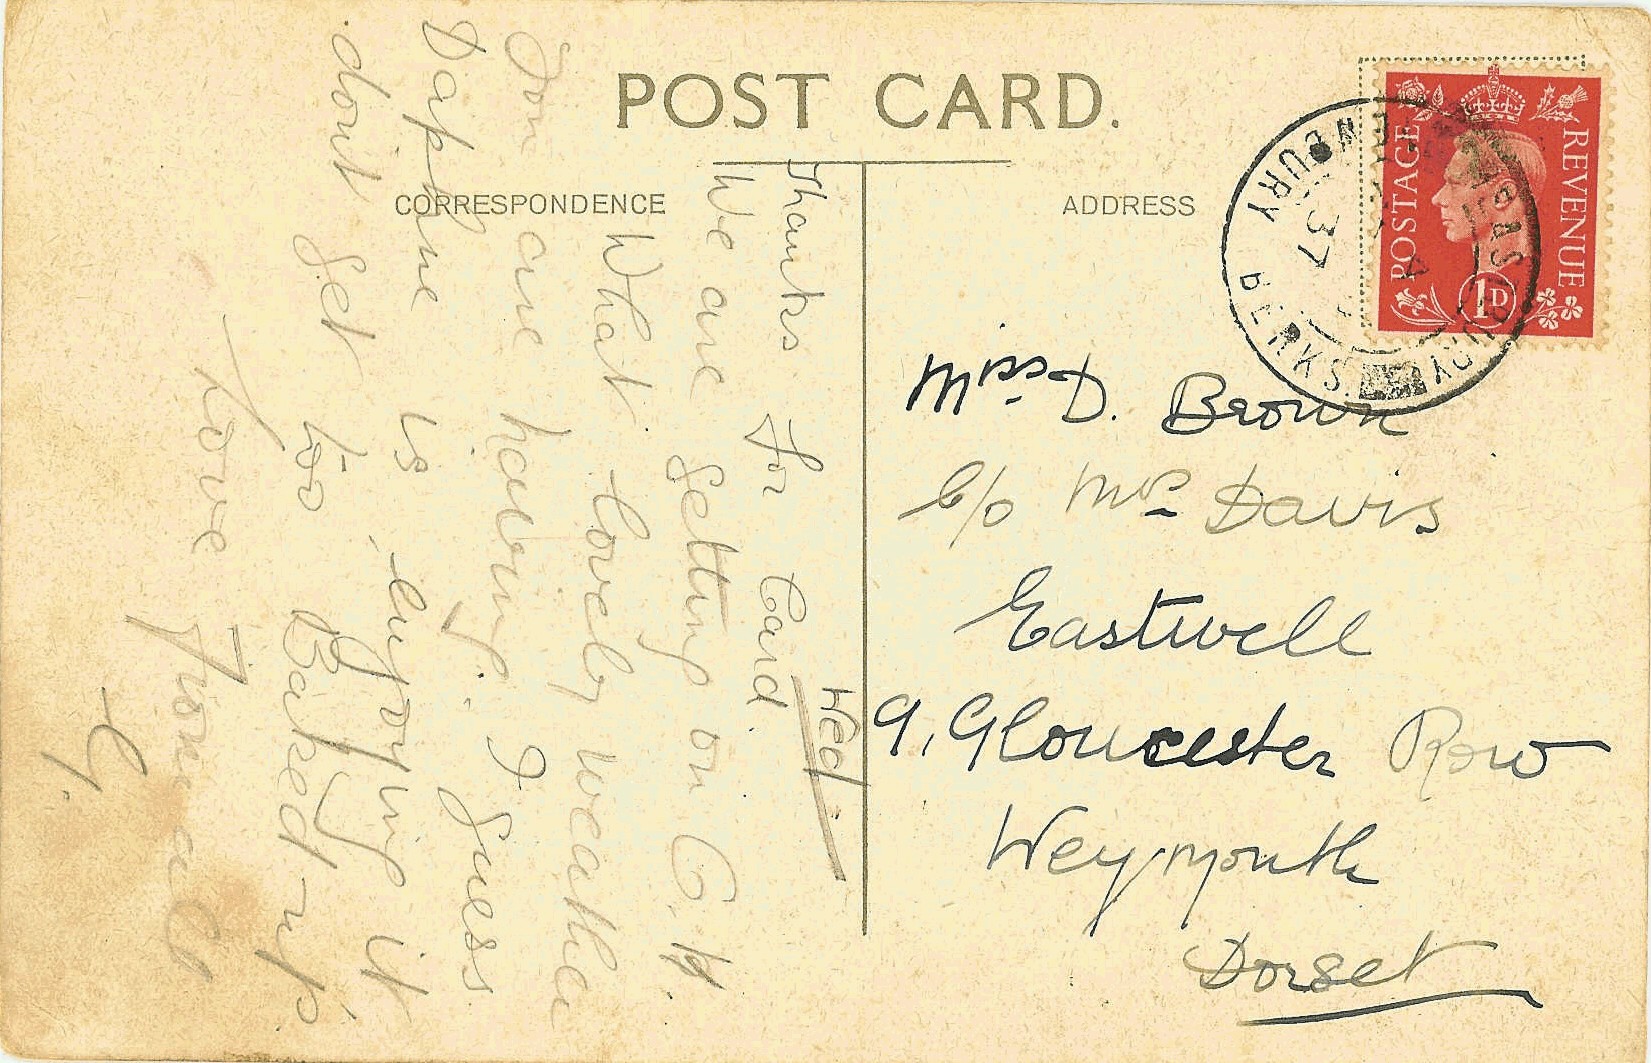 POST CARD.
CORRESPONDENCE
ADDRESS
POSTAGE
REVENUE
1D
NEWBURY BERKS
37
Wed
Thanks for Card.
We are getting on O.K.
What lovely weather
you are having. I guess
Daphne is enjoying it
dont get too Baked-up
Love from all
G.
Miss D. Brown
C/o Mrs Davis
Eastwell
9, Gloucester Row
Weymouth
Dorset